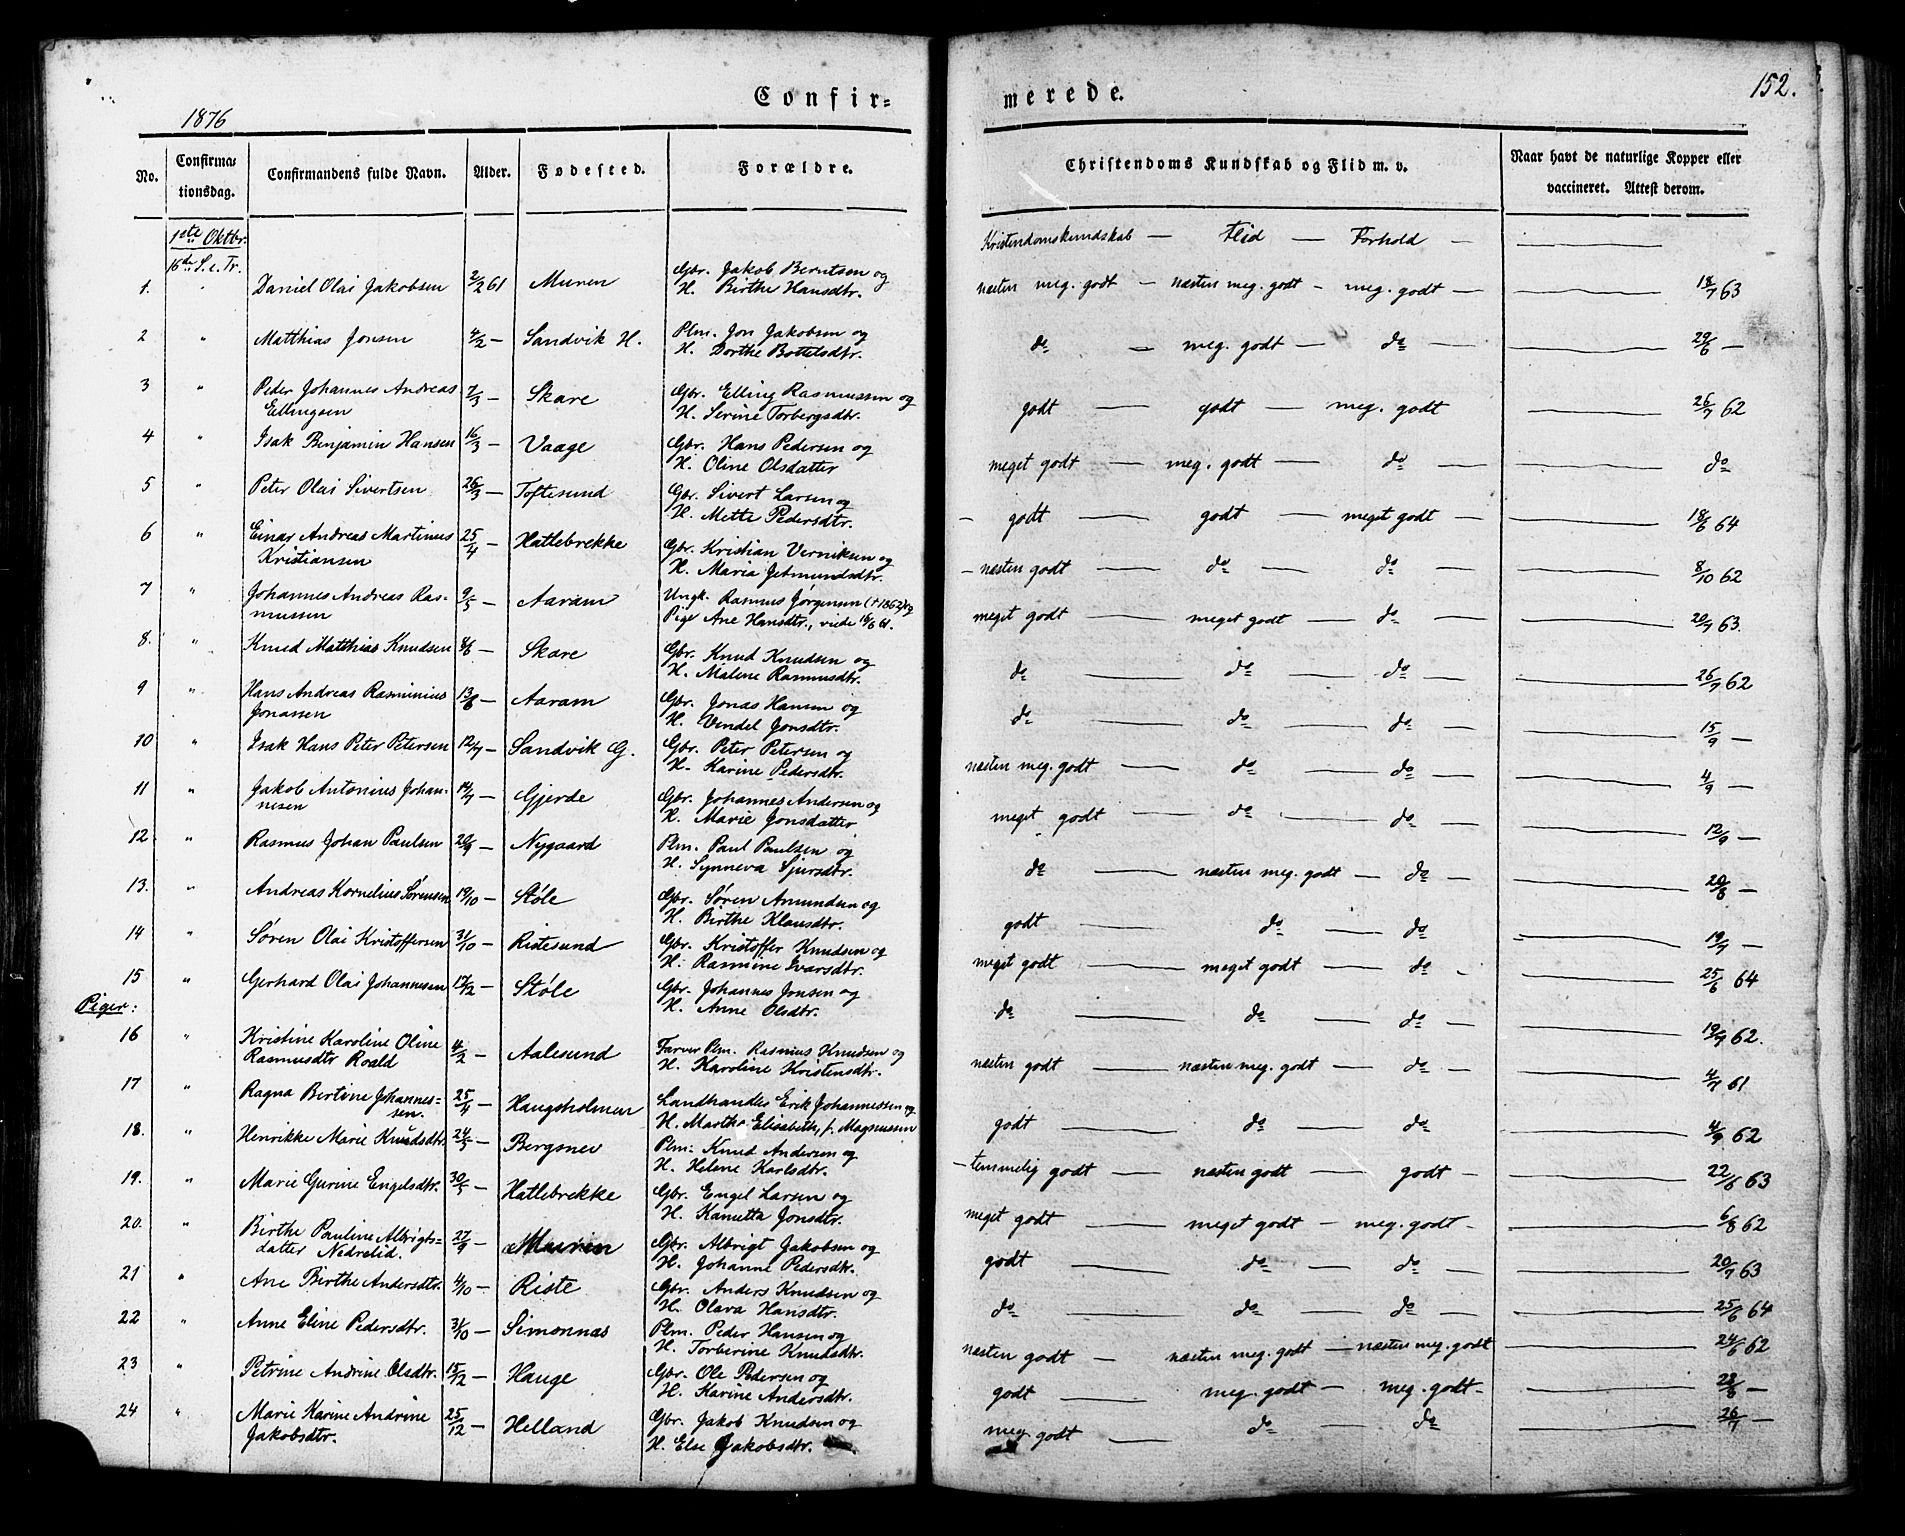 152.
Confir= merede.
1876
No. Confirma= tionsdag. Confirmandens fulde Navn. Alder. Fødested. Forældre. Christendoms Kundskab og Flid m. v. Naar havt de naturlige Kopper eller vaccineret. Attest derom.
1ste Oktbr. Kristendomskundskab — Flid — Forhold —
16de S. e. Tr.
1. " Daniel Olai Jakobsen 2/2 61 Muren Gbr. Jakob Berntsen og
H. Birthe Hansdtr. næsten meg. godt — næsten meg. godt — meg. godt — 18/7 63
2 " Matthias Jonsen 4/2 — Sandvik H. Plm. Jon Jakobsen og
H. Dorthe Bottelsdtr. do — meg. godt — do 29/6 —
3 " Peder Johannes Andreas 7/3 — Skare Gbr. Elling Rasmussen og
Ellingsen H. Serine Torbergsdtr. godt — godt — meg. godt 26/7 62
4 " Isak Benjamin Hansen 16/3 — Vaage Gbr. Hans Pedersen og
H. Oline Olsdatter meget godt — meg. godt — do — do
5 " Peter Olai Sivertsen 26/3 — Toftesund Gbr. Sivert Larsen og
H. Mette Pedersdtr. godt — godt — meget godt — 18/6 64
6 " Einar Andreas Martinus 25/4 — Hatlebrekke Gbr. Kristian Verniksen og
Kristiansen H. Maria Jetmundsdtr. næsten godt — do — do 8/10 62
7 " Johannes Andreas Ras- 9/5 — Aaram Ungk. Rasmus Jørgensen (†1862) og
mussen Pige Ane Hansdtr., viede 16/6 61. meget godt — meget godt — do 20/7 63.
8. " Knud Matthias Knudsen 8/6 — Skare Gbr. Knud Knudsen og
H. Malene Rasmusdtr. do do do 26/7 62
9 " Hans Andreas Rasminius 13/6 — Aaram Gbr. Jonas Hansen og
Jonassen H. Vendel Jonsdtr. do do do 15/9 —
10 " Isak Hans Peter Petersen 12/7 — Sandvik G. Gbr. Peter Petersen og
H. Karine Pedersdtr. næsten meg. godt — do — do 4/9 —
11 " Jakob Antonius Johan- 14/7 — Gjerde Gbr. Johannes Andersen og
nesen H. Marie Jonsdatter meget godt — do — do 12/9 —
12. " Rasmus Johan Paulsen 20/9 — Nygaard Plm. Paul Paulsen og
H. Synneva Sjursdtr. do — næsten meg. godt — do 20/8 —
13. " Andreas Kornelius Sørensen 19/10 — Støle Gbr. Søren Amundsen og
H. Birthe Klausdtr. godt do do 19/7 —
14 " Søren Olai Kristoffersen 31/10 — Ristesund Gbr. Kristoffer Knudsen og
H. Rasmine Ivarsdtr. meget godt — meget godt — do 25/6 64
15 " Gerhard Olai Johannesen 12/12 — Støle Gbr. Johannes Jonsen og
H. Anne Olsdtr. do do do 19/9 62.
Piger:
16 " Kristine Karoline Oline 4/2 — Aalesund Farver Plm. Rasmus Knudsen og
Rasmusdtr Roald H. Karoline Kristensdtr. næsten godt — næsten meg. godt — do 4/7 61
17 " Ragna Bertine Johannes= 25/4 — Haugsholmen Landhandler Erik Johannessen og
sen. H. Martha Elisabeth, f. Magnussen godt — do — do 4/9 62
18. " Henrikke Marie Knudsdtr. 24/5 — Bergsnev Plm. Knud Andersen og
H. Helene Karlsdtr. temmelig godt — næsten godt — godt — 22/6 63
19. " Marie Gurine Engelsdtr. 30/5 — Hatlebrekke Gbr. Engel Larsen og
H. Kanutta Jonsdtr. meget godt — meget godt — meg. godt — 6/8 62
20. " Birthe Pauline Albrigts= 27/9 — Muren Gbr. Albrigt Jakobsen og
datter Nedrelid. H. Johanne Pedersdtr. godt do do 20/7 63
21 " Ane Birthe Andersdtr. 4/10 — Riste Gbr. Anders Knudsen og
H. Olava Hansdtr. do do do 25/6 64
22 " Anne Eline Pedersdtr. 31/10 — Simonnæs Plm. Peder Hansen og
H. Torberine Knudsdtr. næsten godt — næsten meg. godt — næsten meg. godt 24/6 62
23 " Petrine Andrine Olsdtr. 15/12 — Hauge Gbr. Ole Pedersen og
H. Karine Andersdtr. godt — meg. godt — meg. godt — 28/8 —
24 " Marie Karine Andrine 25/12 — Helland Gbr. Jakob Knudsen og
Jakobsdtr. H. Else Jakobsdtr. meg. godt — do — do 26/7 —